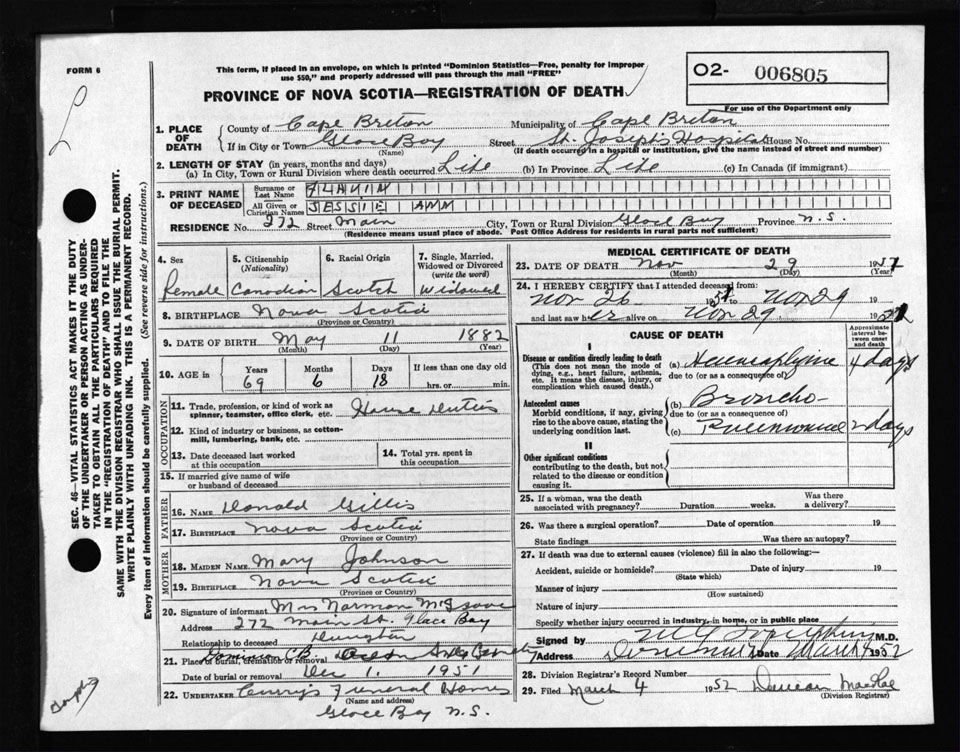 FORM 6
This form, if placed in an envelope, on which is printed "Dominion Statistics—Free, penalty for improper
use $50," and properly addressed will pass through the mail "FREE"
O2- 006805
For use of the Department only
PROVINCE OF NOVA SCOTIA—REGISTRATION OF DEATH
SEC. 46—VITAL STATISTICS ACT MAKES IT THE DUTY
OF THE UNDERTAKER OR PERSON ACTING AS UNDER-
TAKER TO OBTAIN ALL THE PARTICULARS REQUIRED
IN THE "REGISTRATION OF DEATH" AND TO FILE THE
SAME WITH THE DIVISION REGISTRAR WHO SHALL ISSUE THE BURIAL PERMIT.
WRITE PLAINLY WITH UNFADING INK. THIS IS A PERMANENT RECORD.
Every item of information should be carefully supplied. (See reverse side for instructions.)
1. PLACE OF DEATH County of Cape Breton Municipality of Cape Breton
If in City or Town Glace Bay Street St. Joseph's Hospital House No.
(Name) (If death occurred in a hospital or institution, give the name instead of street and number)
2. LENGTH OF STAY (in years, months and days)
(a) In City, Town or Rural Division where death occurred Life (b) In Province Life (c) In Canada (if immigrant)
3. PRINT NAME OF DECEASED Surname or Last Name FLAVIN
All Given or Christian Names JESSIE ANN
RESIDENCE No. 272 Street Main City, Town or Rural Division Glace Bay Province N.S.
(Residence means usual place of abode. Post Office Address for residents in rural parts not sufficient)
4. Sex Female
5. Citizenship (Nationality) Canadian
6. Racial Origin Scotch
7. Single, Married, Widowed or Divorced (write the word) Widowed
8. BIRTHPLACE Nova Scotia
(Province or Country)
9. DATE OF BIRTH May 11 1882
(Month) (Day) (Year)
10. AGE in Years 69 Months 6 Days 18 If less than one day old hrs. or min.
OCCUPATION
11. Trade, profession, or kind of work as
spinner, teamster, office clerk, etc. House Duties
12. Kind of industry or business, as cotton-
mill, lumbering, bank, etc.
13. Date deceased last worked at this occupation
14. Total yrs. spent in this occupation
15. If married give name of wife
or husband of deceased
FATHER
16. NAME Donald Gillis
17. BIRTHPLACE Nova Scotia
(Province or Country)
MOTHER
18. MAIDEN NAME Mary Johnson
19. BIRTHPLACE Nova Scotia
(Province or Country)
20. Signature of informant Mrs Norman McIsaac
Address 272 Main St. Glace Bay
Relationship to deceased
21. Place of burial, cremation or removal Dominion C.B.
Date of burial or removal Dec 1. 1951
22. UNDERTAKER Curry's Funeral Home
(Name and address)
Glace Bay N.S.
MEDICAL CERTIFICATE OF DEATH
23. DATE OF DEATH Nov 29 1951
(Month) (Day) (Year)
24. I HEREBY CERTIFY that I attended deceased from:
Nov 26 1951 to Nov 29 19
and last saw her alive on Nov 29 1951
CAUSE OF DEATH
Approximate interval between onset and death
I
Disease or condition directly leading to death
(This does not mean the mode of dying, e.g., heart failure, asthenia, etc. It means the disease, injury, or complication which caused death.)
(a) 4 days
due to (or as a consequence of)
Antecedent causes
Morbid conditions, if any, giving rise to the above cause, stating the underlying condition last.
(b) Broncho-
due to (or as a consequence of)
(c) 2 days
II
Other significant conditions
contributing to the death, but not related to the disease or condition causing it.
25. If a woman, was the death associated with pregnancy? Duration weeks. Was there a delivery?
26. Was there a surgical operation? Date of operation 19
State findings Was there an autopsy?
27. If death was due to external causes (violence) fill in also the following:—
Accident, suicide or homicide? Date of injury 19
(State which)
Manner of injury
(How sustained)
Nature of injury
Specify whether injury occurred in industry, in home, or in public place
Signed by M.D.
Address Dominion Date March 4 1952
28. Division Registrar's Record Number
29. Filed March 4 1952 Duncan MacRae
(Division Registrar)